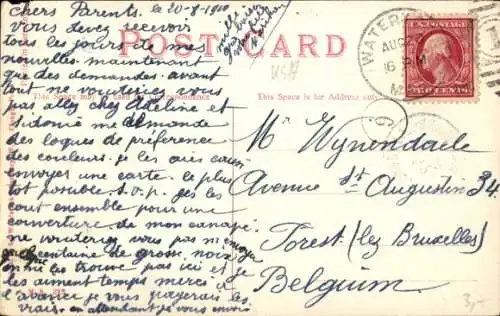 Chers Parents. le 20-8-1910
vous devez recevoir
tous les jours de mes
nouvelles maintenant
que des demandes. avant
tout ne voudriez vous
pas chez Adeline et
Sidonie me demande
des loques de preference
des couleurs. je les
envoyer une carte. le plus
tot possible. s.v.p. les
tout ensemble pour une
couverture. de mon canapé
ne voudriez vous pas m'envoyer
centaine de grosse noix
on ne les trouve pas ici et je
les aiment temps merci
d'avance je vous payerais les
frais. en attendant je vous envoi
mille
POST CARD
USA
This space may be used for
This Space is for Address only
WATER
AUG
16
M
U.S. POSTAGE
TWO CENTS
Mr Wynendaele
Avenue St Augustin 34
Forest (lez Bruxelles)
Belgium
3,-